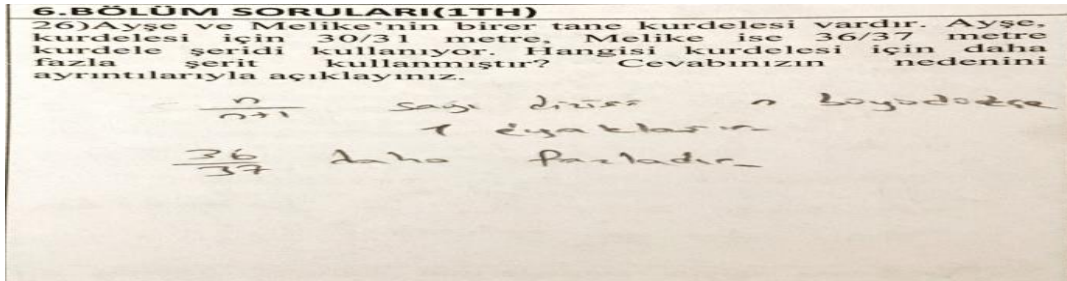 6.BÖLÜM SORULARI(1TH)
26)Ayşe ve Melike'nin birer tane kurdelesi vardır. Ayşe,
kurdelesi için 30/31 metre, Melike ise 36/37 metre
kurdele şeridi kullanıyor. Hangisi kurdelesi için daha
fazla şerit kullanmıştır? Cevabınızın nedenini
ayrıntılarıyla açıklayınız.
n/n+1 sayı dizisi n büyüdükçe
1 yaklaşır
36/37 daha fazladır